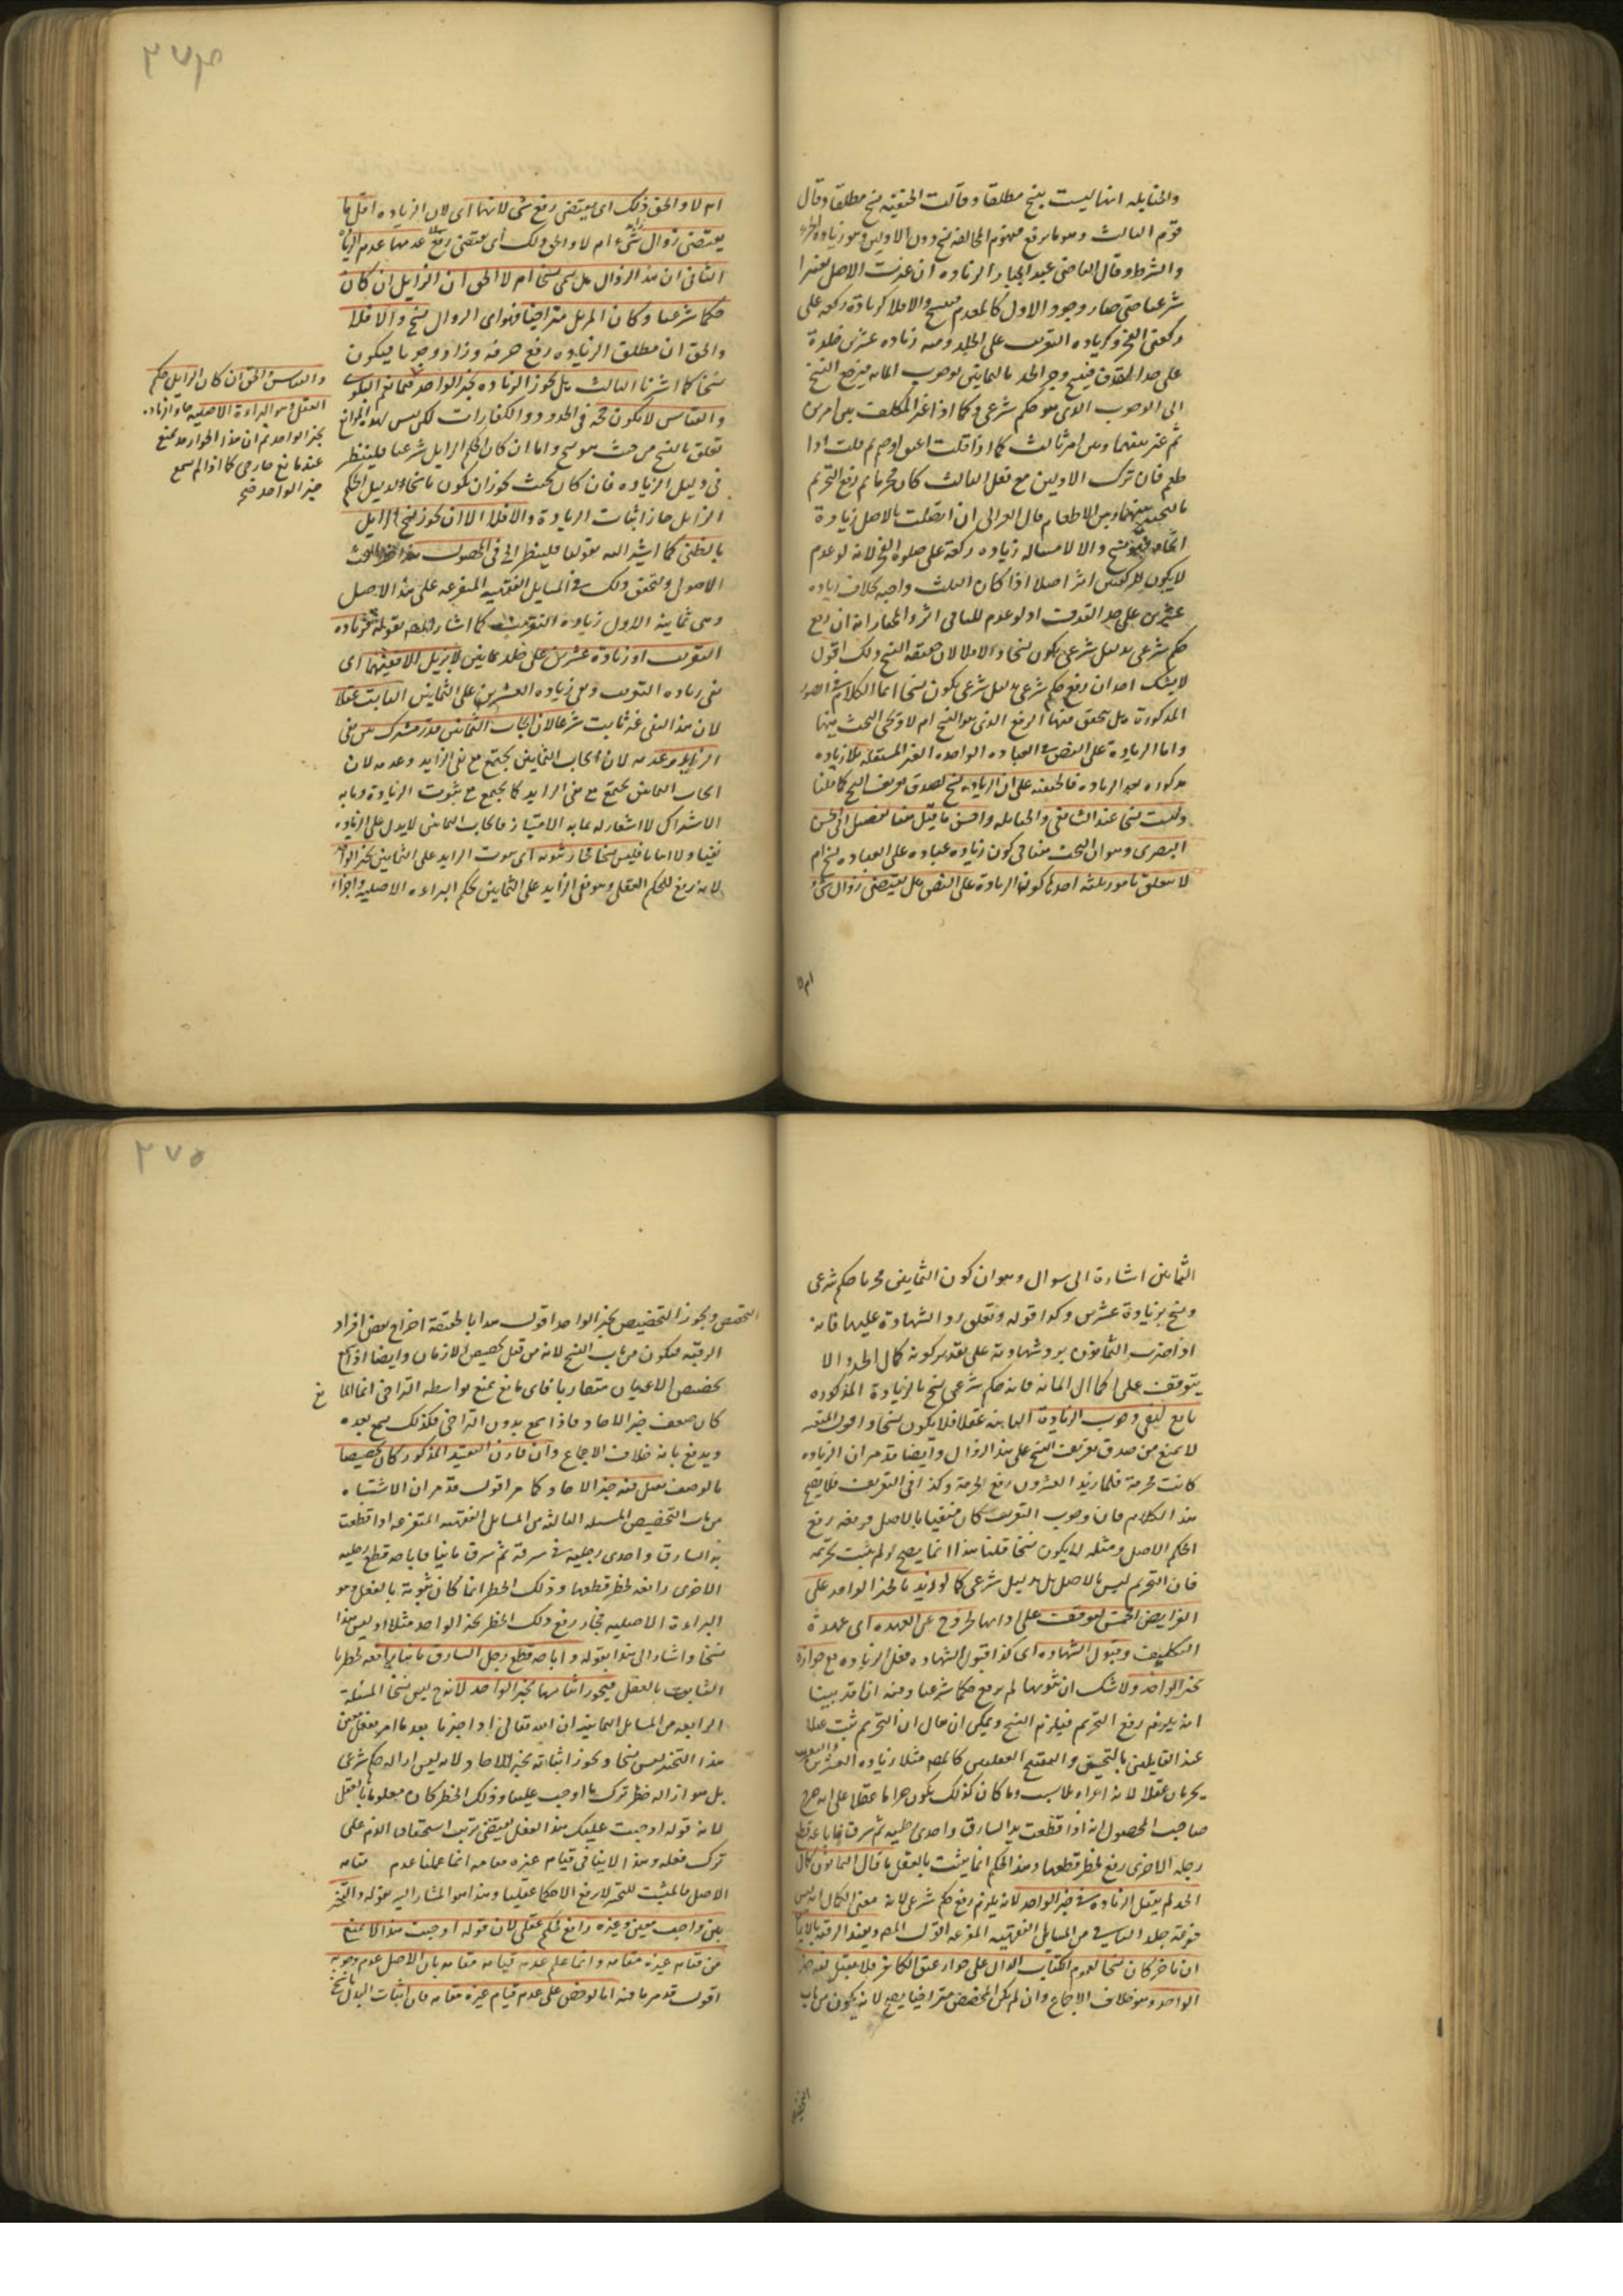 والحنابله انها ليست بنسخ مطلقا وقالت الحنفيه نسخ مطلقا وقال
قوم الثالث وهو ما يرفع مفهوم المخالفه نسخ دون الاولين وهو زياده الجزء
والشرط وقال القاضى عبد الجبار الزياده ان غيرت الاصل تغييرا
شرعيا حتى صار وجود الاول كالمعدم فنسخ والا فلا كزيادة ركعه على
ركعتى الفجر وكزياده التغريب على الجلد ومنه زياده عشرين جلدة
على حد القذف فنسخ وجوب الحد بالثمانين لوجوب المايه فيرفع النسخ
الى الوجوب الذى هو حكم شرعى وكما اذا خير المكلف بين امرين
ثم خير بينهما وبين امر ثالث كما اذا قلت اعتق او صم ثم قلت اذا
طعم فان ترك الاولين مع فعل الثالث كان محرما ثم رفع التحريم
بالتخيير بينهما وبين الاطعام قال الغزالى ان اتصلت بالاصل زيادة
اتحاد فنسخ والا لا مثاله زياده ركعة على صلوة الفجر لانه لو عدم
لا يكون للركعتين اثر اصلا اذا كان الثلث واجبه بخلاف زياده
عشرين على حد القذف اذ لو عدم للباقى اثر والمختار انه ان رفع
حكم شرعى بدليل شرعى يكون نسخا والا فلا لان حقيقه النسخ ذلك اقول
لا يشك احد ان رفع حكم شرعى بدليل شرعى يكون نسخا انما الكلام فى الصور
المذكورة هل يتحقق فيها الرفع الذى هو النسخ ام لا ويجى البحث فيها
واما الزيادة على النص فى العباده الواحده الغير المستقله بلا زياده
مذكوره بعد الزياده فالحنفيه على ان الزياده نسخ لصدق تعريف النسخ كما قلنا
وليست نسخا عند الشافعى والحنابله واحسن ما قيل هنا تفصيل ابى الحسين
البصرى وهو ان البحث هنا فى كون زياده عباده على العباده نسخ ام
لا يتعلق بامور ثلثه احدها كون الزيادة على النص هل يقتضى زوال شئ
ام لا
٢٧٤
ام لا والحق ذلك اى يقتضى رفع شى لانها اى لان الزياده اقل ما
يقتضى زوال شئ ام لا والحق ذلك اى يقتضى رفع عدمها عدم الزياده
الثانى ان هذا الزوال هل يسمى نسخا ام لا الحق ان الزايل ان كان
حكما شرعيا وكان المزيل متراخيا فهو اى الزوال نسخ والا فلا
والحق ان مطلق الزياده رفع حرمه وزاد وجوبا فيكون
نسخا كما اشرنا الثالث هل يجوز الزياده بخبر الواحد فيما تعم البلوى
والقياس لا يكون حجه فى الحدود والكفارات لكن ليس لهذا الموانع
تعلق بالنسخ من حيث هو نسخ واما ان كان الحكم الزايل شرعيا فلينظر
فى دليل الزياده فان كان بحيث يجوز ان يكون ناسخا لدليل الحكم
الزايل جاز اثبات الزيادة والا فلا الا ان يجوز نسخ الزايل
بالظنى كما اشير اليه بقولها فلينظر الى فى المحصول هذا البحث
الاصول وتحقق ذلك فى المسايل الفقهيه المتفرعه على هذا الاصل
وهى ثمانية الاول زيادة التغريب كما اشار اليه بقوله فزياده
التغريب او زيادة عشرين على جلد ثمانين لا يزيل الا نفيهما اى
نفى زياده التغريب ونفى زياده العشرين على الثمانين الثابت عقلا
لان هذا النفى غير ثابت شرعا لان ايجاب الثمانين قدر مشترك بين نفى
الزايد وعدمه لان ايجاب الثمانين يجتمع مع نفى الزايد وعدمه لان
ايجاب الثمانين يجتمع مع نفى الزايد كما يجتمع مع ثبوت الزيادة وما به
الاشتراك لا اشعار له بما به الامتياز فايجاب الثمانين لا يدل على الزياده
نفيا ولا اثباتا فليس نسخا فجاز ثبوته اى ثبوت الزايد على الثمانين بخبر الواحد
لانه رفع للحكم العقلى وهو نفى الزايد على الثمانين بحكم البراءه الاصلية واجزاء
والقياس والحق ان كان الزايل حكم
العقل وهو البراءة الاصليه جاز الزياده
بخبر الواحد ثم ان هذا الجواز قد يمنع
عنه مانع خارجى كما اذا لم يسمع
خبر الواحد صح
الثمانين اشارة الى سوال وهو ان كون الثمانين مجزيا حكم شرعى
ونسخ بزيادة عشرين وكذا قوله وتعلق رد الشهادة عليها فانه
اذا ضرب الثمانون يرد شهادته على تقدير كونه كمال الحد والا
يتوقف على اكمال المائة فانه حكم شرعى نسخ بالزيادة المذكوره
تابع لنفى وجوب الزيادة الثابته عقلا فلا يكون نسخا واقول التبعيه
لا يمنع من صدق تعريف النسخ على هذا الزوال وايضا قد مر ان الزياده
كانت محرمة فلما زيد العشرون رفع الحرمة وكذا فى التغريب فلا يصح
هذا الكلام فان وجوب التغريب كان منفيا بالاصل فرفعه رفع
الحكم الاصلى ومثله لا يكون نسخا قلنا هذا انما يصح لو لم يثبت تحريمه
فان التحريم ليس بالاصل بل بدليل شرعى كما لو زيد بالخبر الواحد على
الفرايض الخمس لتوقف على ادائها الخروج عن العهده اى عهدة
التكليف وقبول الشهاده اى كذا قبول الشهاده فعل الزياده مع جوازه
بخبر الواحد ولا شك ان ثبوتها لم يرفع حكما شرعيا وفيه انا قد بينا
انه يلزم رفع التحريم فيلزم النسخ ويمكن ان يقال ان التحريم ثبت عقلا
عند القايلين بالتحسين والتقبيح العقليين كالمص مثلا زياده العشرين والتغريب
يحرمان عقلا لانه ايذاء بلا سبب وما كان كذلك يكون حراما عقلا على انه صرح
صاحب المحصول انه اذا قطعت يد السارق واحدى رجليه ثم سرق فاباحه قطع
رجله الاخرى رفع لحظر قطعها وهذا الحكم انما يثبت بالعقل ما قال الثمانون كمال
الحد لم يقبل الزياده فى خبر الواحد لانه يلزم رفع حكم شرعى لانه معنى الكمال انه ليس
فوقه جلد الثانى من المسايل الفقهيه المفرعه اقول المص وتقييد الرقبه بالايمان
ان تاخر كان نسخا لعموم الكتاب الدال على جواز عتق الكافر فلا يقبل فيه خبر
الواحد وهو خلاف الاجماع وان لم يكن المخصص متراخيا يصح لانه يكون من باب
التخصيص
٢٧٥
التخصيص ويجوز التخصيص بخبر الواحد اقول هذا بالحقيقة اخراج بعض افراد
الرقبه فيكون من باب النسخ لانه من قبل تخصيص الازمان وايضا اذا صح
تخصيص الاعيان متقاربا فاى مانع يمنع بواسطه التراخى انما المانع
كان ضعف خبر الاحاد فاذا سمع بدون التراخى فكذلك سمع بعده
ويدفع بانه خلاف الاجماع وان قارن التقييد المذكور كان تخصيصا
بالوصف فقبل فيه خبر الاحاد كما مر اقول قد مر ان الاشتباه
من باب التخصيص المسئله الثالثه من المسايل الفقهيه المتفرعه اذا قطعت
يد السارق واحدى رجليه فى سرقة ثم سرق ثانيا فاباحه قطع رجليه
الاخرى رافعه لحظر قطعها وذلك الحظر انما كان ثبوته بالعقل وهو
البراءة الاصليه فجاز رفع ذلك الحظر بخبر الواحد مثلا اذ ليس هذا
نسخا واشار الى هذا بقوله واباحه قطع رجل السارق ثانيا رافعه لحظرها
الثابت بالعقل فيجوز اثباتها بخبر الواحد لانه ليس نسخا المسئلة
الرابعه من المسايل الثمانيه ان الله تعالى اذا خيرنا بعد ما امر بفعل معين
هذا التخيير ليس نسخا ويجوز اثباته بخبر الاحاد ولانه ليس ازاله حكم شرعى
بل هو ازاله حظر ترك ما اوجب علينا وذلك الحظر كان معلوما بالعقل
لانه قوله اوجبت عليك هذا الفعل يقتضى ترتب استحقاق الذم على
ترك فعله وهذا لا ينافى قيام غيره مقامه انما علمنا عدم قيامه
الاصل فالمثبت للتخيير لا رفع الا حكما عقليا وهذا هو المشار اليه بقوله والتخيير
بين واجب معين وغيره رافع لحكم عقلى لان قوله اوجبت هذا لا يمنع
من قيام غيره مقامه وانما علم عدم قيامه مقامه بان الاصل عدم وجوبه
اقول قد مر ما فيه اما لو نص على عدم قيام غيره مقامه فان اثبات البدل ناسخ